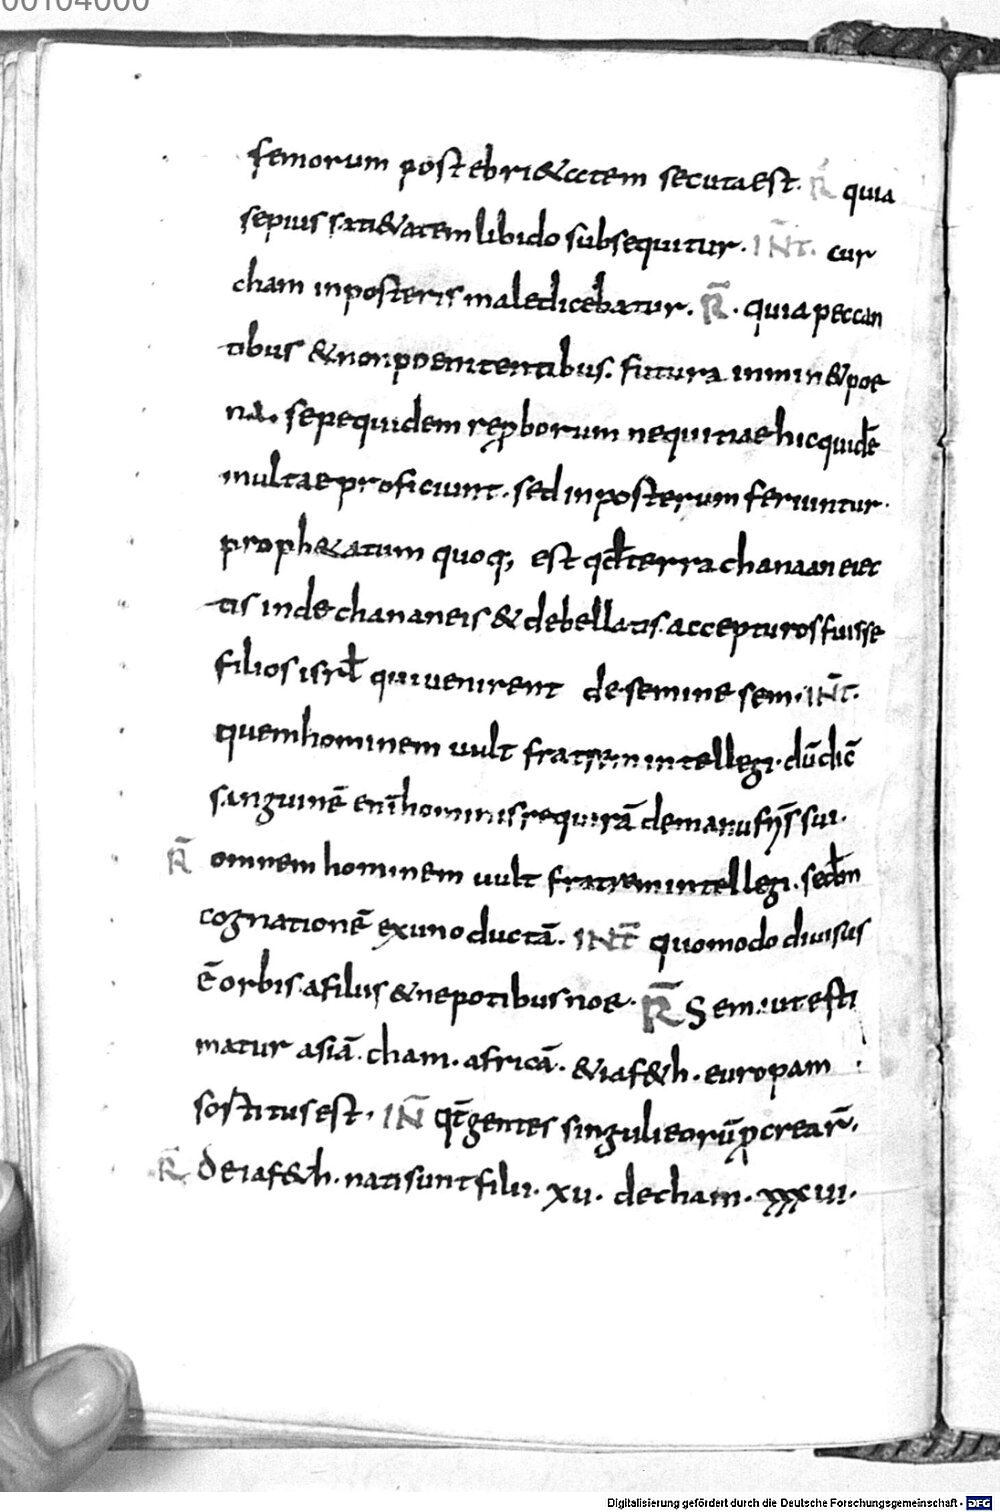 00104000
femorum post ebri&atem secuta est. R̄ quia
sepius sati&atem libido subsequitur. INT̄. cur
cham in posteris maledicebatur. R̄. quia peccan
tibus & non poenitentibus. futura inmin& poe
na. sepe quidem reproborum nequitiae hic quidē
multae proficiunt. sed in posterum feriuntur.
proph&atum quoq; est qđ terra chanaan eiec
tis inde chananeis & debellatis accepturos fuisse
filios isrł qui venirent de semine sem. INT̄.
quem hominem vult fratrem intellegi. dū dic̄
sanguinē enī hominis requirā de manu fr̄is sui.
R̄ omnem hominem vult fratrem intellegi. secđm
cognationē ex uno ductā. INT̄ quomodo divisus
ē orbis a filiis & nepotibus noe. R̄ Sem. ut esti
matur asiā. cham. africā. & iaf&h. europam
sostitus est. IN̄ qt̄ gentes singuli eorū ꝓcrear̄.
R̄ De iaf&h. nati sunt filii. xv. de cham. xxxiii.
Digitalisierung gefördert durch die Deutsche Forschungsgemeinschaft - DFG